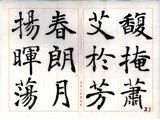 馥掩蕭
艾於芳
春朗月
揚暉蕩